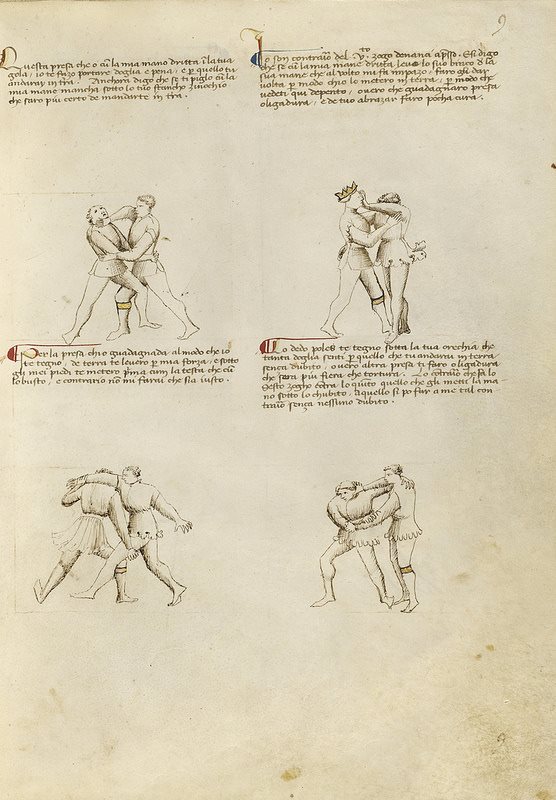 9
Questa presa che o cu la mia mano dritta i la tua
gola, io te fazo portare doglia e pena, e p quello tu
andaray in tra. Anchora digo che se ti piglo cu la
mia mano mancha sotto lo tuo stancho zinochio
che saro più certo de mandarte in tra.
Io son contrario del v.to zogo denanci
che se cu la mia mane dritta levo lo suo brazo de la
sua mane che al volto mi fa impazo, faro gli dar
volta p modo chio lo metero in terra, p modo che
vedeti qui depento, overo che guadagnaro presa
o ligadura, e de tuo abrazar faro pocha cura.
Per la presa chio guadagnada al modo che io
te tegno, de terra te levero p mia forza, e sotto
gli miei piedi te metero prima cum la testa che cu
lo busto, e contrario no mi farai che sia iusto.
Lo dedo poles te tegno sotto la tua orechia che
tanta doglia senti p quello che tu andarai in terra
senza dubito, overo altra presa ti faro o ligadura
che sera più fiera che tortura. Lo contrario che fa lo
sesto zogho contra lo quinto quello che gli metti la ma
no sotto lo chubito, aquello si po far a me tal con
trario senza nessuno dubito.